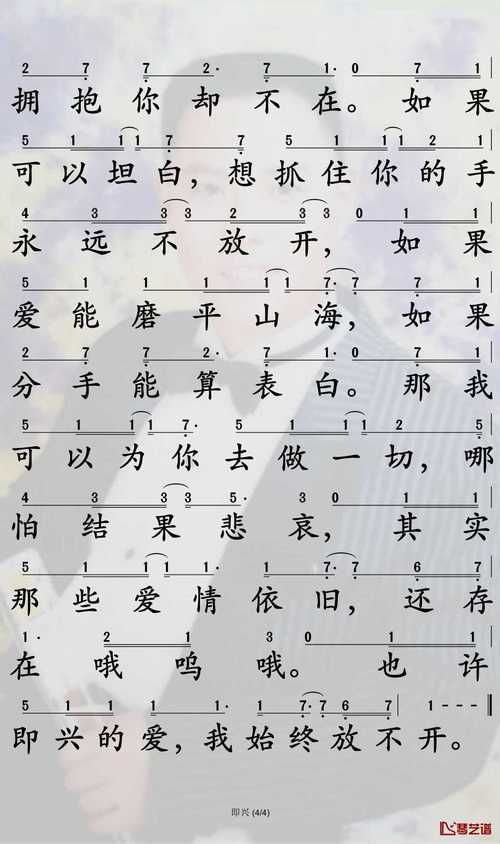 2 7 7 2· 7 1· 0 7 1
拥抱你却不在。如果
5 1 1 1 7 7 5 1 1 1 2 1
可以坦白，想抓住你的手
4 3 3 3 2 3 3 0 1 1
永远不放开，如果
5 1 1 1 1 1 7· 7 7 1
爱能磨平山海，如果
2 7 7 2· 7 1· 0 7 1
分手能算表白。那我
5 1 1 1 7· 5 1 1 1 2 5
可以为你去做一切，哪
4 3 3 3 5· 3 0 1 1
怕结果悲哀，其实
5 1 1 1 1· 1 7· 7 6 7
那些爱情依旧，还存
1· 2 1 3 0 1 1
在哦呜哦。也许
5 1 1 1 1· 1 7· 7 6 7 1 - - -
即兴的爱，我始终放不开。
即兴 (4/4)
琴艺谱